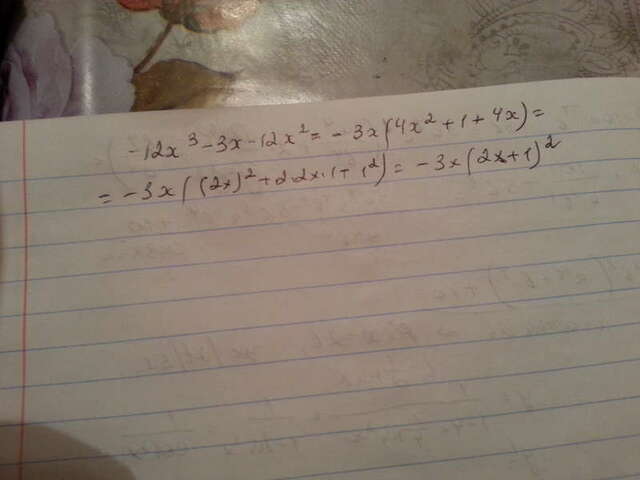 -12x³-3x-12x²=-3x(4x²+1+4x)=
=-3x((2x)²+2·2x·1+1²)=-3x(2x+1)²